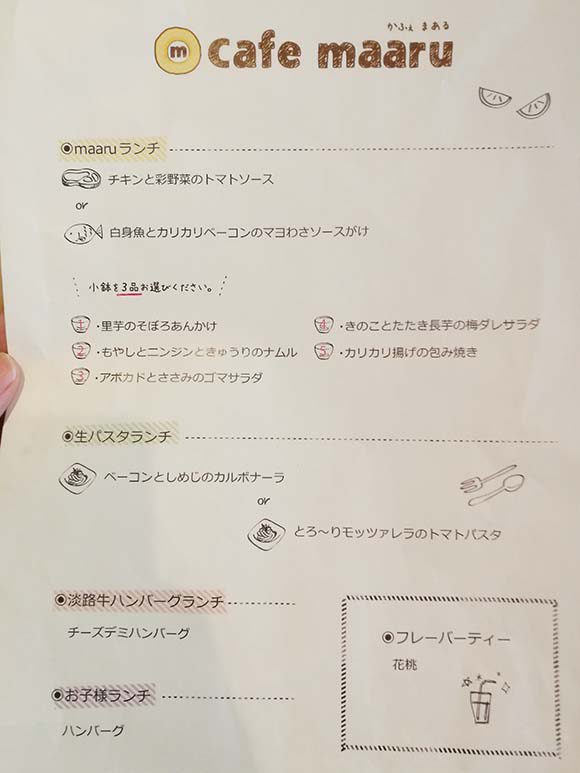 かふぇ まある
m cafe maaru
◉maaruランチ
チキンと彩野菜のトマトソース
or
白身魚とカリカリベーコンのマヨわさソースがけ
小鉢を3品お選びください。
1 ・里芋のそぼろあんかけ
2 ・もやしとニンジンときゅうりのナムル
3 ・アボカドとささみのゴマサラダ
4 ・きのことたたき長芋の梅ダレサラダ
5 ・カリカリ揚げの包み焼き
◉生パスタランチ
ベーコンとしめじのカルボナーラ
or
とろ～りモッツァレラのトマトパスタ
◉淡路牛ハンバーグランチ
チーズデミハンバーグ
◉お子様ランチ
ハンバーグ
◉フレーバーティー
花桃